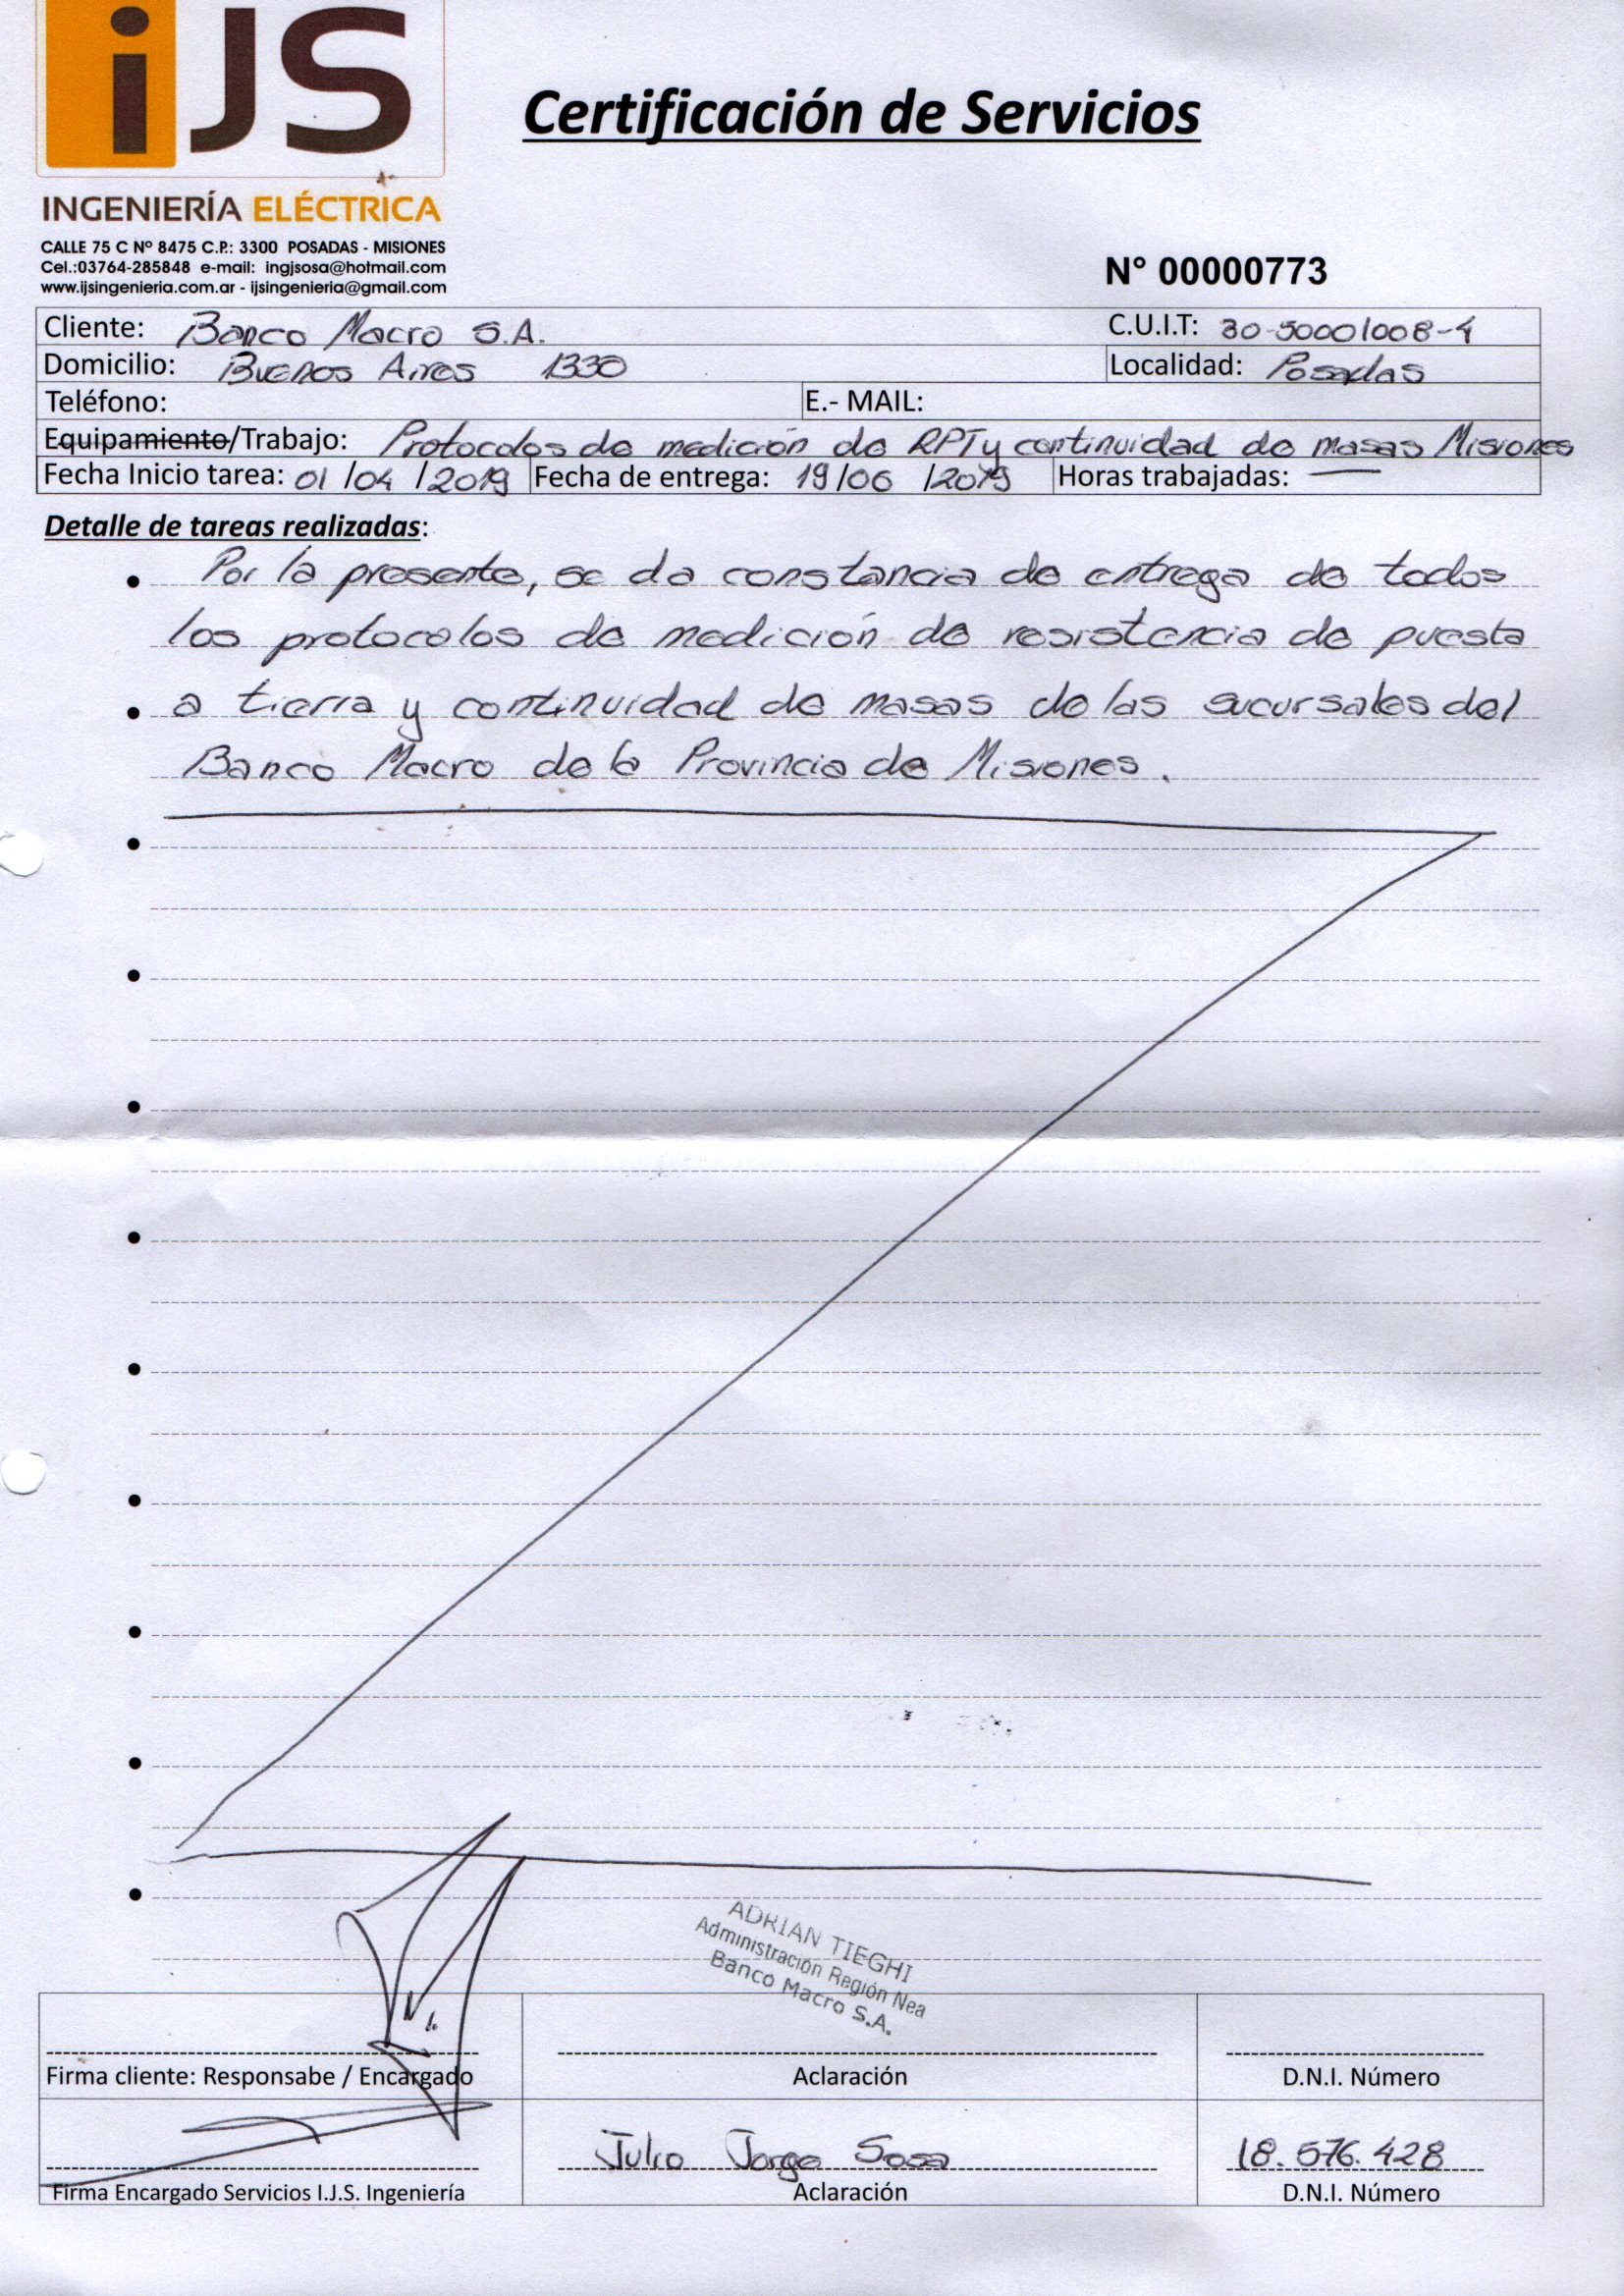 iJS
INGENIERÍA ELÉCTRICA
CALLE 75 C Nº 8475 C.P.: 3300 POSADAS - MISIONES
Cel.:03764-285848 e-mail: ingjsosa@hotmail.com
www.ijsingenieria.com.ar - ijsingenieria@gmail.com
Certificación de Servicios
N° 00000773
Cliente: Banco Macro S.A. C.U.I.T: 30-50001008-4
Domicilio: Buenos Aires 1330 Localidad: Posadas
Teléfono: E.- MAIL:
Equipamiento/Trabajo: Protocolos de medición de RPT y continuidad de masas Misiones
Fecha Inicio tarea: 01/04/2019 Fecha de entrega: 19/06/2019 Horas trabajadas: —
Detalle de tareas realizadas:
Por la presente, se da constancia de entrega de todos
los protocolos de medición de resistencia de puesta
a tierra y continuidad de masas de las sucursales del
Banco Macro de la Provincia de Misiones.
ADRIAN TIEGHI
Administración Región Nea
Banco Macro S.A.
Firma cliente: Responsabe / Encargado Aclaración D.N.I. Número
Julio Jorge Sosa 18.576.428
Firma Encargado Servicios I.J.S. Ingeniería Aclaración D.N.I. Número